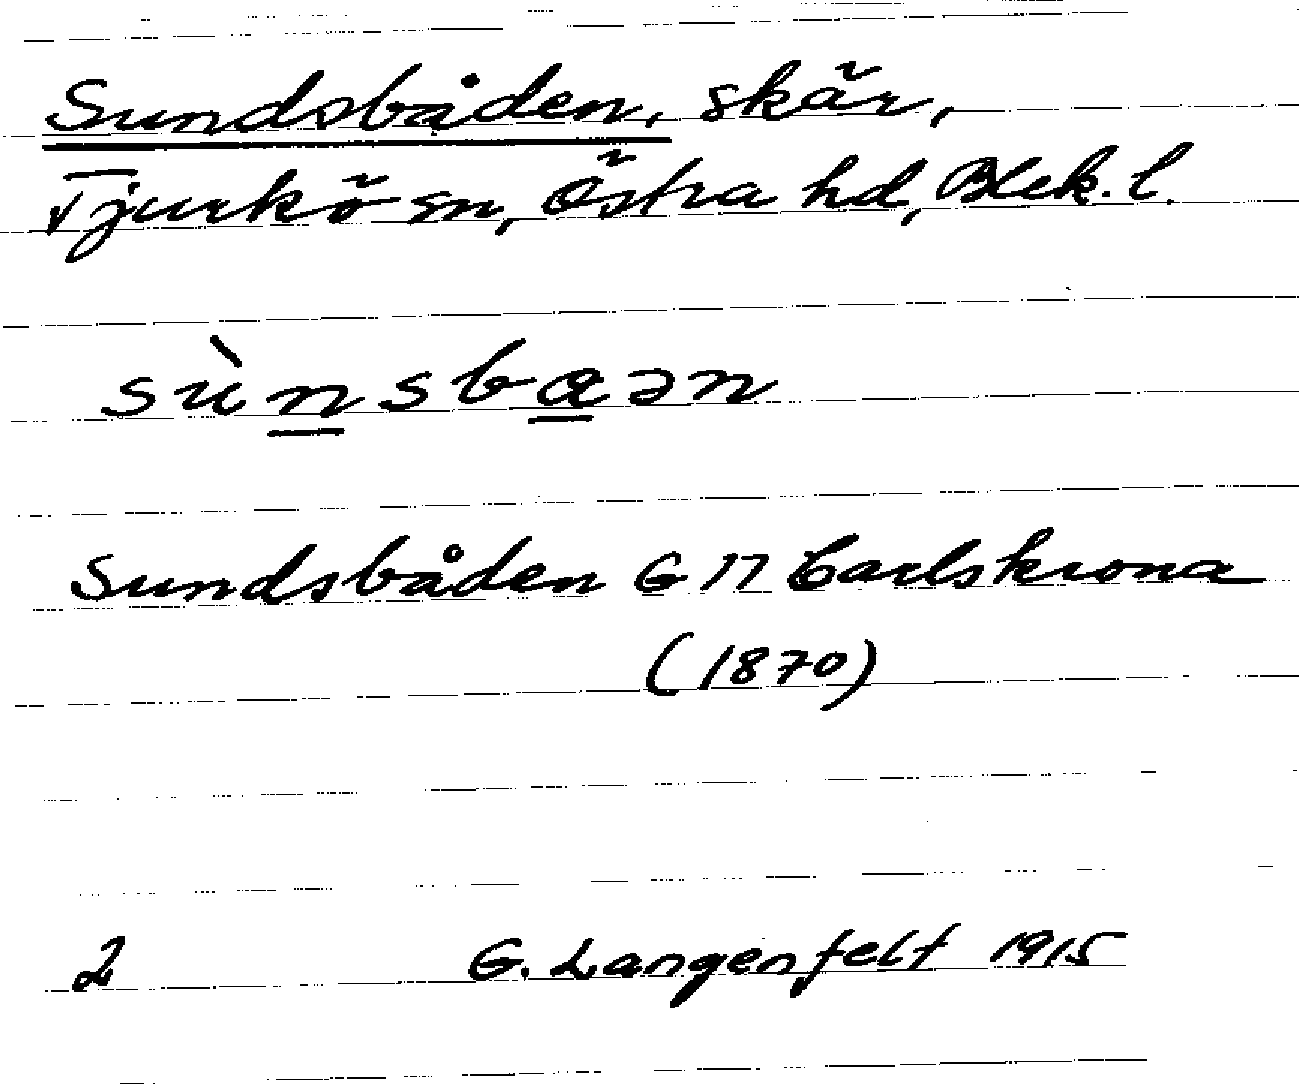 Sundsbåden, skär,
Tjurkö sn, Östra hd, Blek. l.
sùnsbaən
Sundsbåden G 17 Carlskrona
(1870)
2 G. Langenfelt 1915